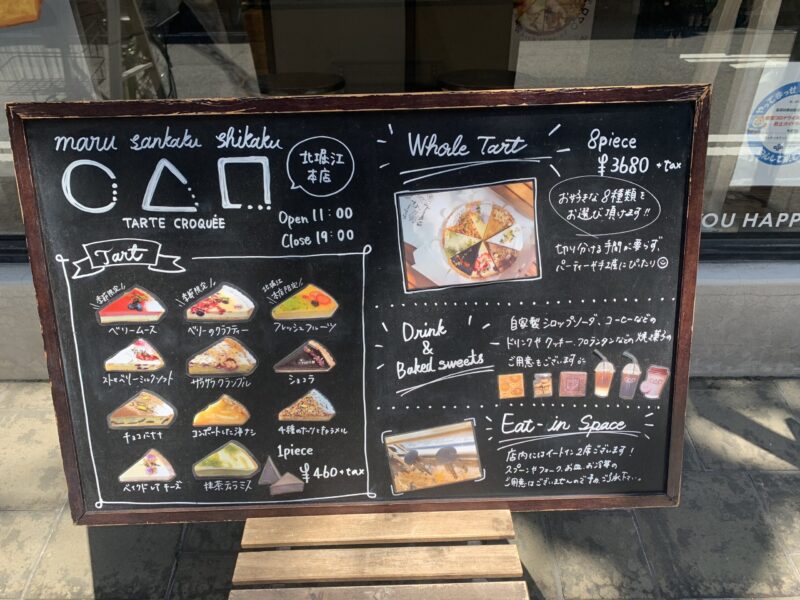 maru sankaku shikaku
北堀江
本店
TARTE CROQUÉE
Open 11:00
Close 19:00
Tart
季節限定
ベリームース
季節限定
ベリーのクラフティー
北堀江
本店限定
フレッシュフルーツ
ストロベリーミックスナッツ
サクサククランブル
ショコラ
チョコバナナ
コンポートした洋ナシ
4種のナッツとキャラメル
ベイクドレアチーズ
抹茶テラミス
1piece
¥460+tax
Whole Tart
8piece
¥3680+tax
お好きな8種類を
お選び頂けます!!
切り分ける手間が要らず、
パーティーや手土産にぴったり
Drink
&
Baked sweets
自家製シロップソーダ、コーヒーなどの
ドリンクやクッキー、フロランタンなどの焼き菓子の
ご用意もございます
Eat-in Space
店内にはイートイン2席ございます!
スプーンやフォーク、お皿、お冷等の
ご用意はございませんので予め、ご了承下さい。
YOU HAPP